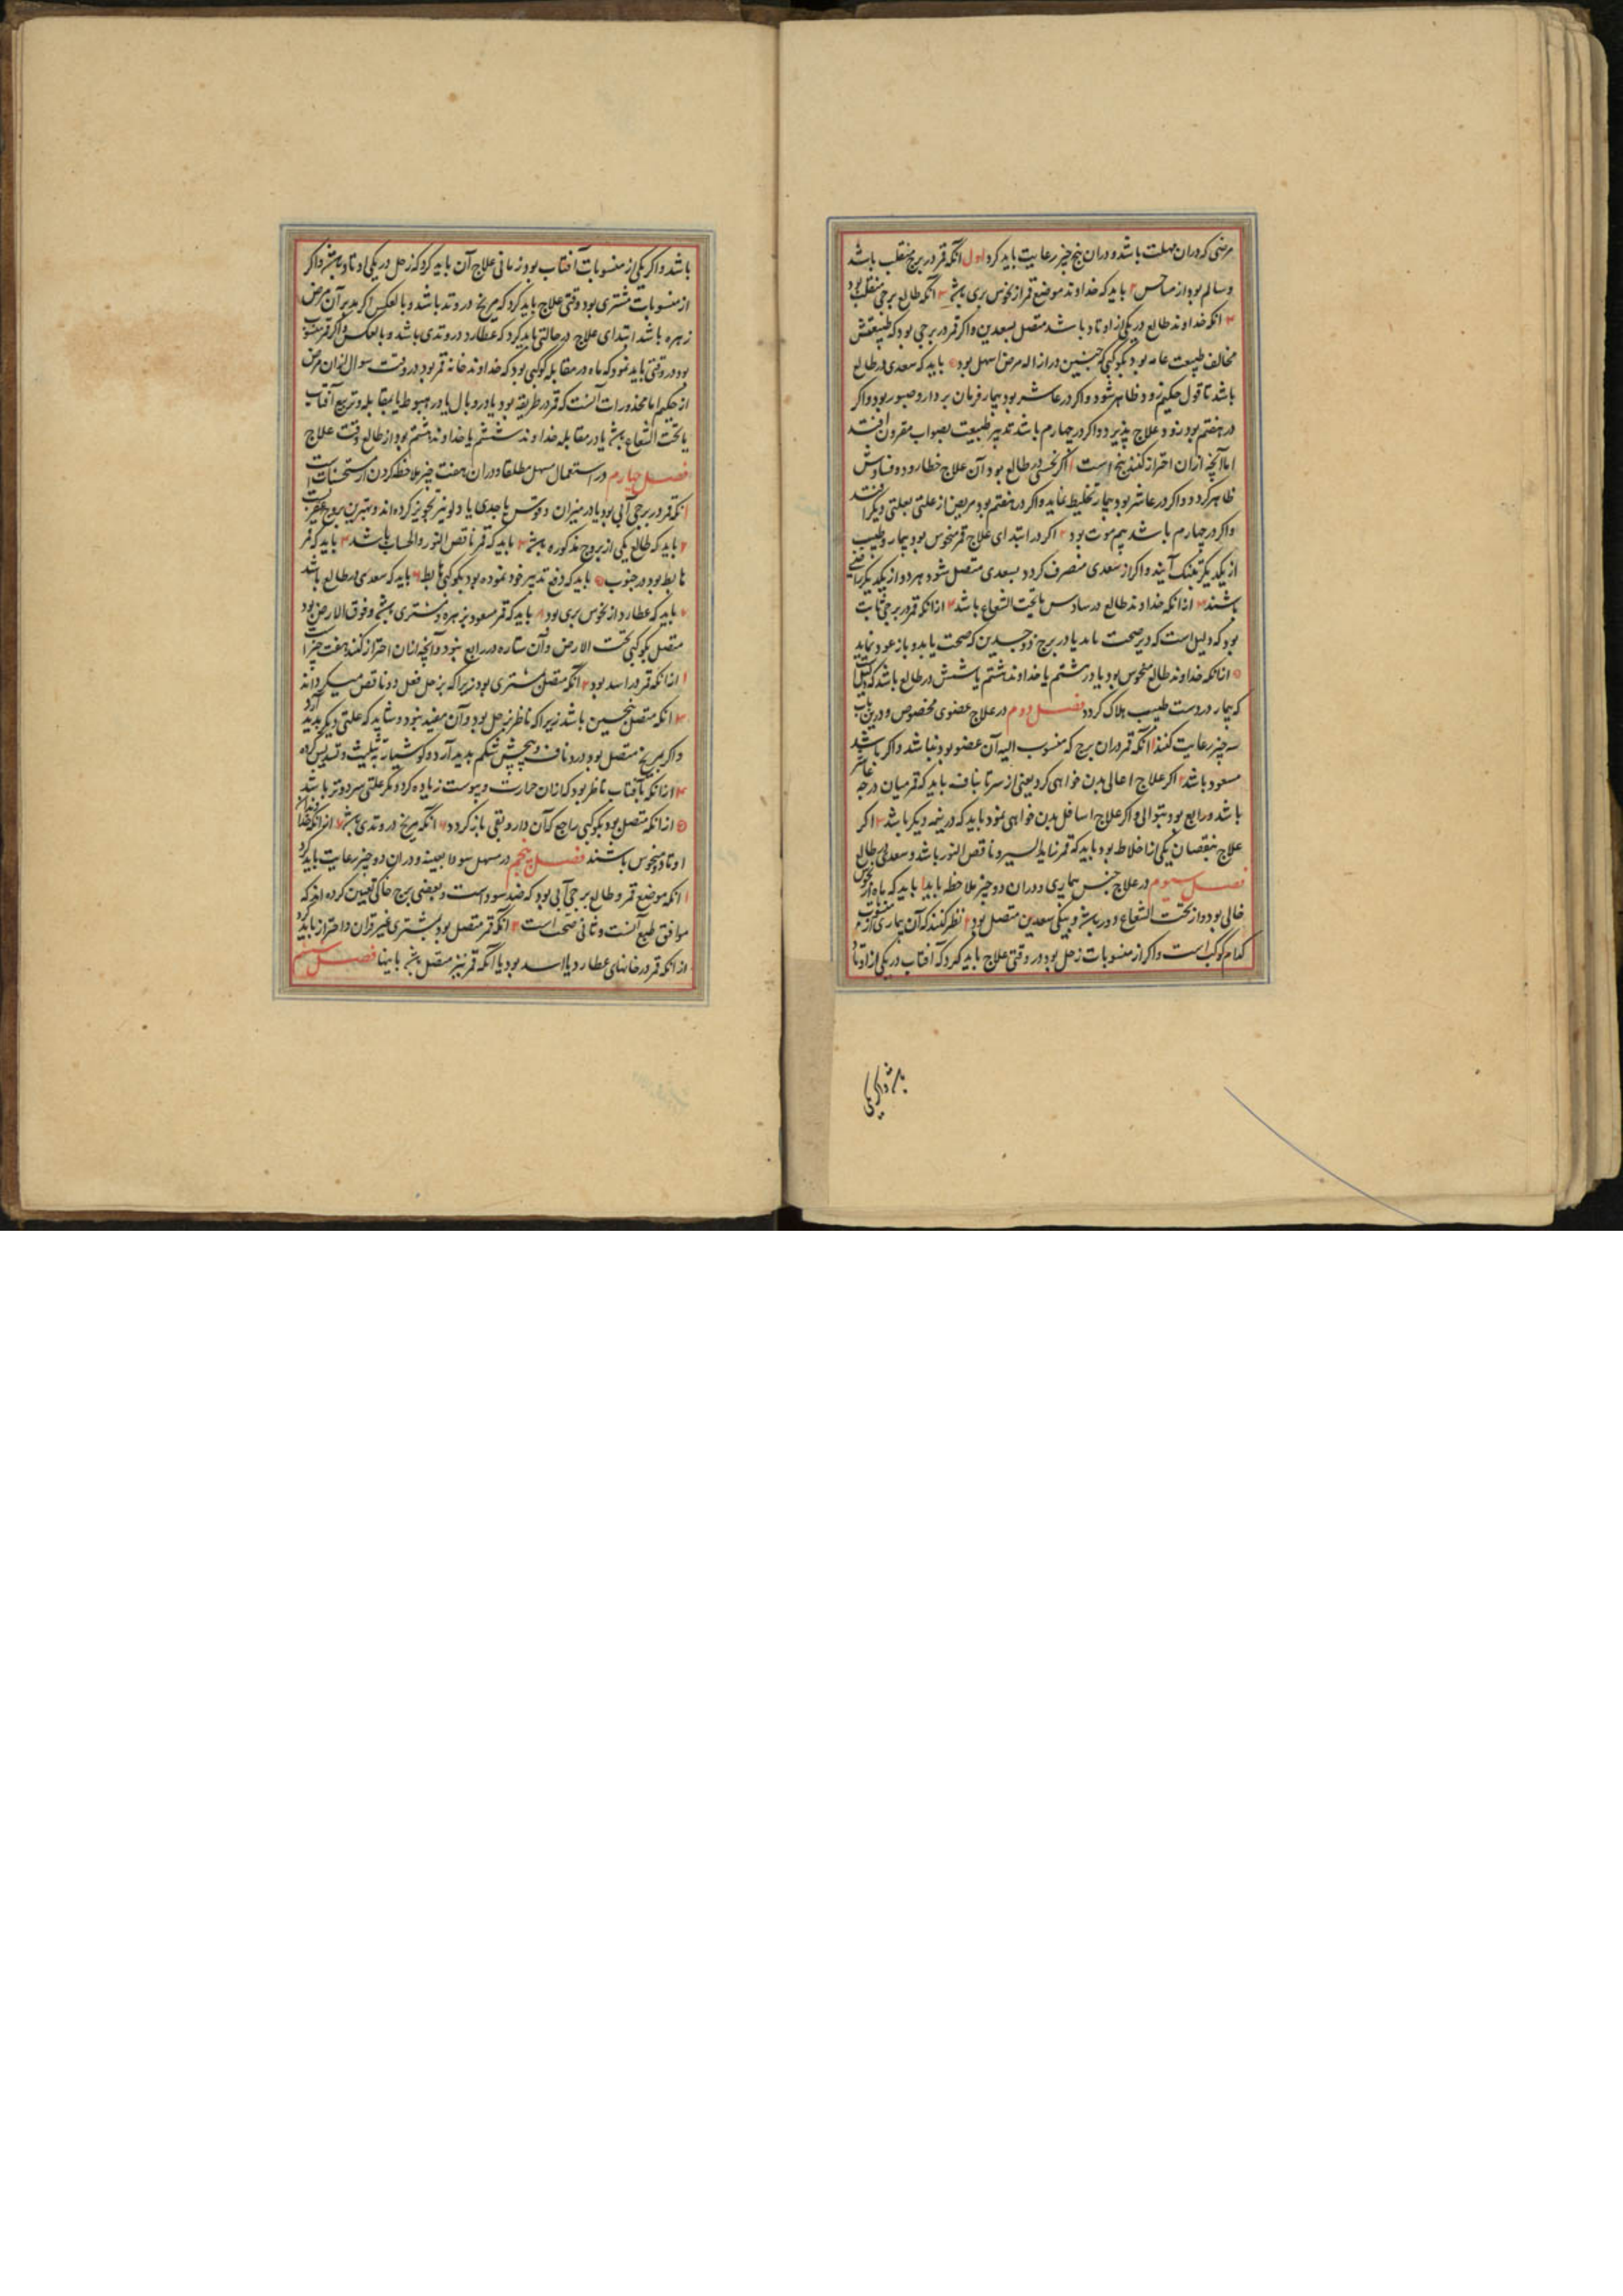 مرضی که دران مهلت باشد و دران پنج چیز رعایت باید کرد اول آنکه قمر در برج منقلب باشد
و سالم بود از مناحس ۲ باید که خداوند موضع قمر از نحوس بری باشد ۳ آنکه طالع برجی منقلب بود
۴ آنکه خداوند طالع در یکی از اوتاد باشد متصل بسعدین و اگر قمر در برجی بود که طبیعتش
مخالف طبیعت بود بکوکبی که چنین در ازاله مرض اسهل بود ۵ باید که سعدی در طالع
باشد تا قول حکیم زود ظاهر شود و اگر در عاشر بود بیمار فرمان بردار و صبور بود و اگر
در هفتم بود زود علاج پذیرد و اگر در چهارم باشد تدبیر طبیعت بصواب مقرون افتد
اما آنچه ازان احتراز کنند پنج است ۱ اگر نحسی در طالع بود آن علاج خطا رود و فسادش
ظاهر گردد و اگر در عاشر بود بیمار تخلیط نماید و اگر در هفتم بود مریض از علتی بعلتی دیگر افتد
و اگر در چهارم باشد بیم موت بود ۲ اگر در ابتدای علاج قمر منحوس بود بیمار و طبیب
از یکدیگر بتنگ آیند و اگر از سعدی منصرف گردد بسعدی متصل شود هر دو از یکدیگر راضی
باشند ۳ ازانکه خداوند طالع در سادس یا تحت الشعاع باشد ۴ ازانکه قمر در برجی ثابت
بود که دلیل است که دیر صحت یابد یا در برج ذوجسدین که صحت یابد و باز عود نماید
۵ ازانکه خداوند طالع منحوس بود یا در هشتم یا خداوند هشتم یا ششم در طالع باشد که دلیل است
که بیمار در دست طبیب هلاک گردد فصل دوم در علاج عضوی مخصوص و درین باب
سه چیز رعایت کنند ۱ آنکه قمر دران برج که منسوب الیه آن عضو بود نباشد و اگر باشد
مسعود باشد ۲ اگر علاج اعالی بدن خواهی کرد یعنی از سر تا بناف باید که قمر میان درجه عاشر
باشد و رابع بود بتوالی و اگر علاج اسافل بدن خواهی نمود باید که در نیمه دیگر باشد ۳ اگر
علاج بنقصان یکی از اخلاط بود باید که قمر زاید السیر و ناقص النور باشد و سعدی در طالع
فصل سیوم در علاج جنس بیماری و دران دو چیز ملاحظه باید ۱ باید که ماه از نحوس
خالی بود و از تحت الشعاع دور باشد و بیکی سعدین متصل بود ۲ نظر کنند که آن بیماری از منسوبات
کدام کوکب است و اگر از منسوبات زحل بود در وقتی علاج باید کرد که آفتاب در یکی از اوتاد
باشد و اگر یکی
باشد و اگر یکی از منسوبات آفتاب بود زمانی علاج آن باید کرد که زحل در یکی اوتاد باشد و اگر
از منسوبات مشتری بود وقتی علاج باید کرد که مریخ در وتد باشد و بالعکس اگر مدبر آن مرض
زهره باشد ابتدای علاج در حالتی باید کرد که عطارد در وتدی باشد و بالعکس و اگر قمر منسوب
بود در وقتی باید نمود که ماه در مقابله کوکبی بود که خداوند خانه قمر بود در وقت سوال ازان مرض
از حکیم اما محذورات آنست که قمر در طریقه بود یا در وبال یا در هبوط یا بمقابله و تربیع آفتاب
یا تحت الشعاع باشد یا در مقابله خداوند ششم یا خداوند هشتم بود از طالع وقت علاج
فصل چهارم در استعمال مسهل مطلقا و دران هفت چیز ملاحظه کردن از مستحسنات است
۱ آنکه قمر در برجی آبی بود یا در میزان و قوس یا جدی یا دلو نیز تجویز کرده اند و بهترین بروج عقرب است
۲ باید که طالع یکی از بروج مذکوره باشد ۳ باید که قمر ناقص النور و الحساب باشد ۴ باید که قمر
هابط بود در جنوب ۵ باید که دفع تدبیر خود نموده بود بکوکبی هابط ۶ باید که سعدی در طالع باشد
۷ باید که عطارد از نحوس بری بود ۸ باید که قمر مسعود بزهره و مشتری باشد و فوق الارض بود
متصل بکوکبی تحت الارض و آن ستاره در رابع نبود و آنچه ازان احتراز کنند هفت چیز است
۱ ازانکه قمر در اسد بود ۲ آنکه متصل مشتری بود زیرا که بزحل فعل دو ناقص میگرداند
۳ آنکه متصل بنحسین باشد زیرا که ناظر بزحل بود و آن مفید نبود و شاید که علتی دیگر پدید آرد
و اگر بمریخ متصل بود درد ناف و پیچش شکم پدید آرد و کوشیار به تثلیث و تسدیس کرده
۴ ازانکه بآفتاب ناظر بود که ازان حرارت و یبوست زیاده گردد مگر علتی سرد و تر باشد
۵ ازانکه متصل بود بکوکبی راجع که آن دارو بقی باز گردد ۶ آنکه مریخ در وتدی باشد ۷ ازانکه خداوندان
اوتاد منحوس باشند فصل پنجم در مسهل سودا بعینه و دران دو چیز رعایت باید کرد
۱ آنکه موضع قمر و طالع برجی آبی بود که ضد سوداست و بعضی برج خاکی تعیین کرده اند که
موافق طبع آنست و ثانی صحت است ۲ آنکه قمر متصل بود بمشتری غیر قران و احتراز باید کرد
از آنکه قمر در خانهای عطارد یا اسد بود یا آنکه قمر نیز متصل باشد باینها فصل ششم